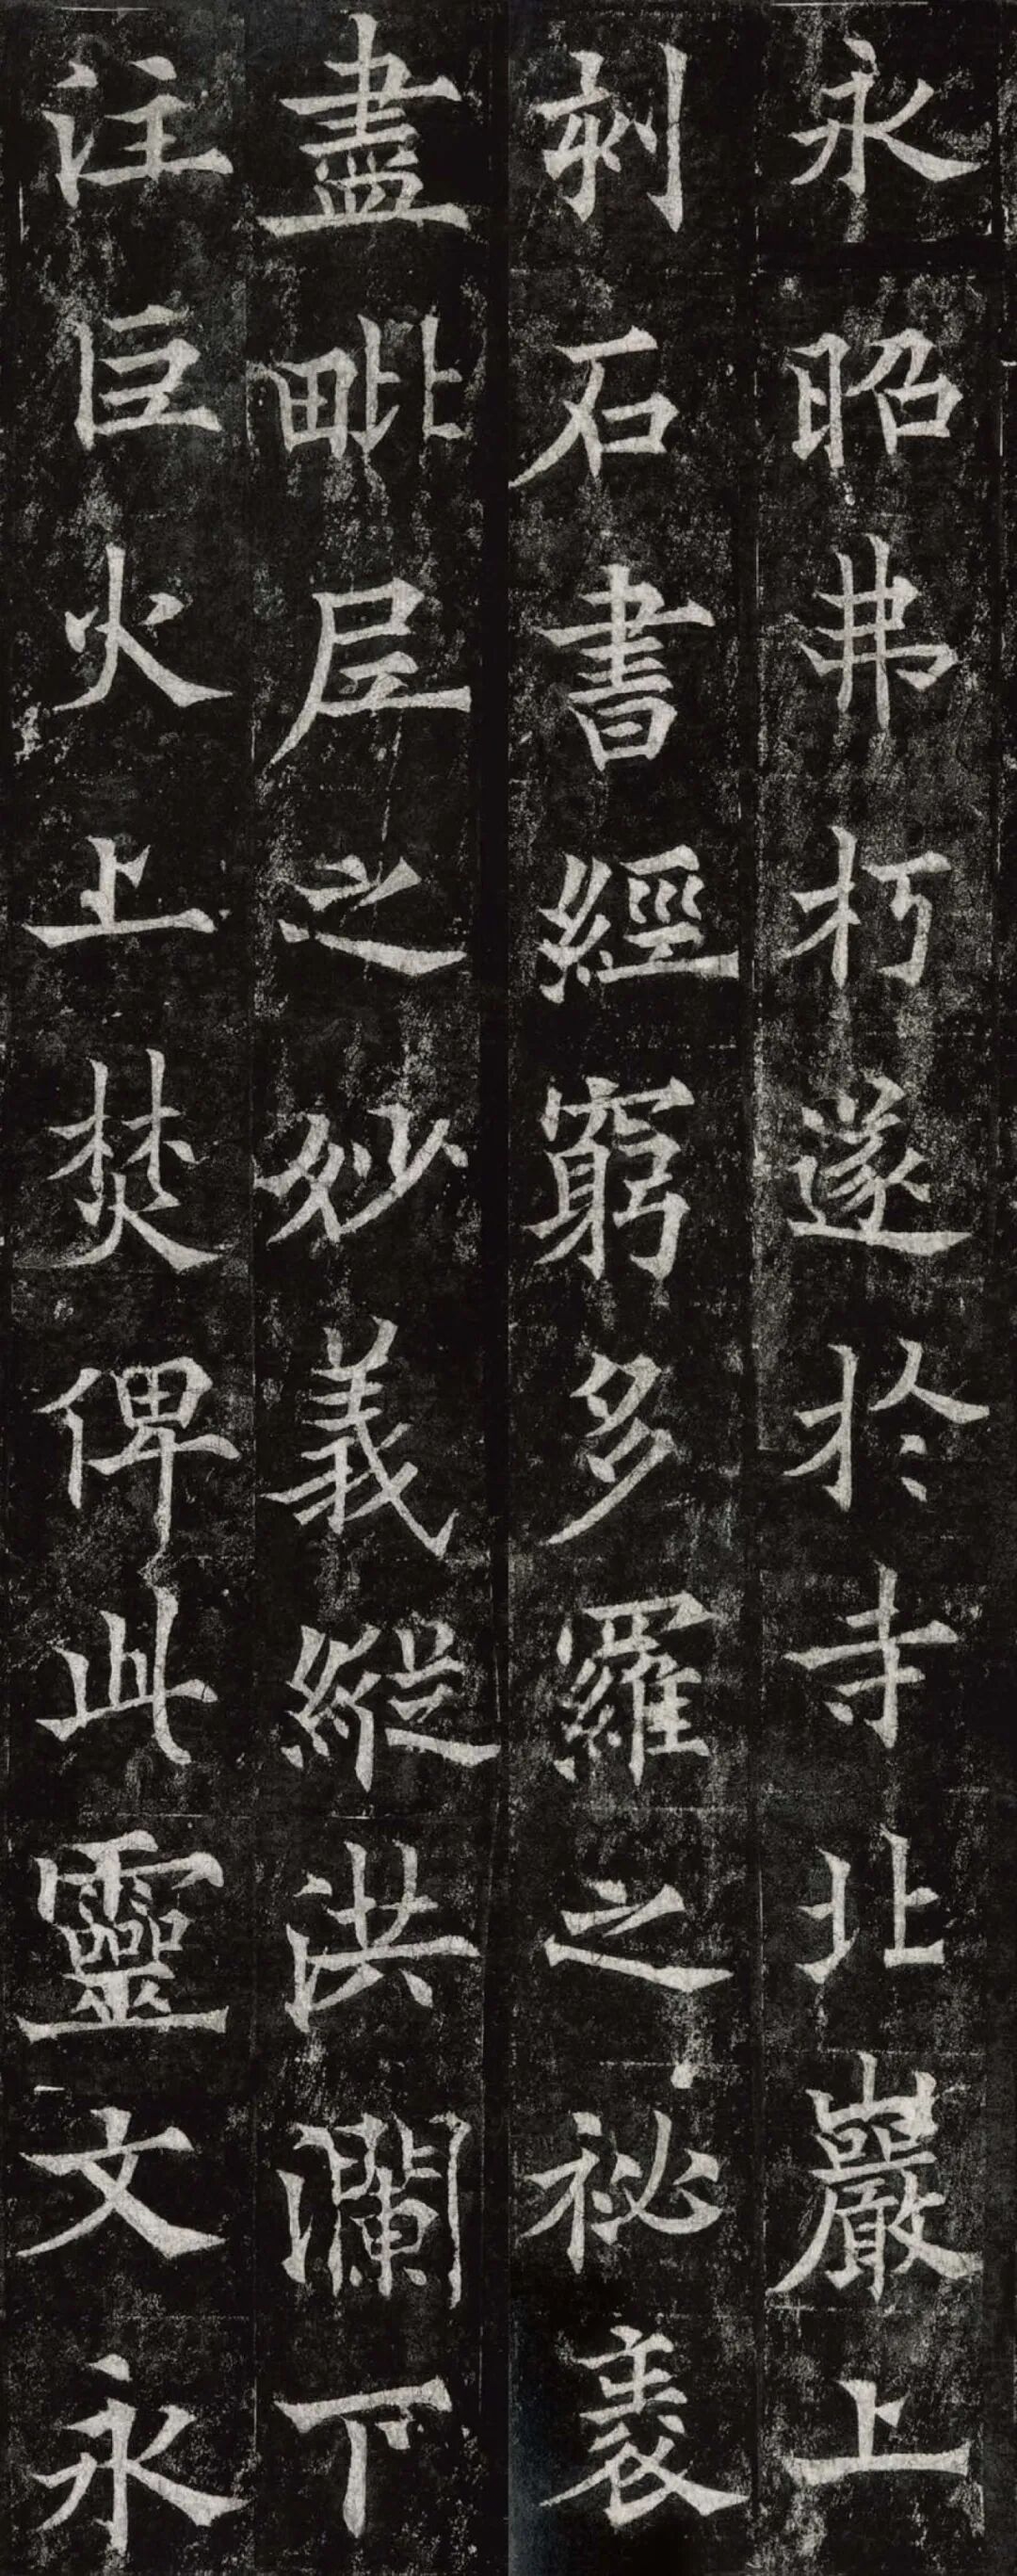 永昭弗朽遂於寺北巖上
刹石書經窮多羅之祕裹
盡毗尼之妙義縱洪瀾下
注巨火上焚俾此靈文永